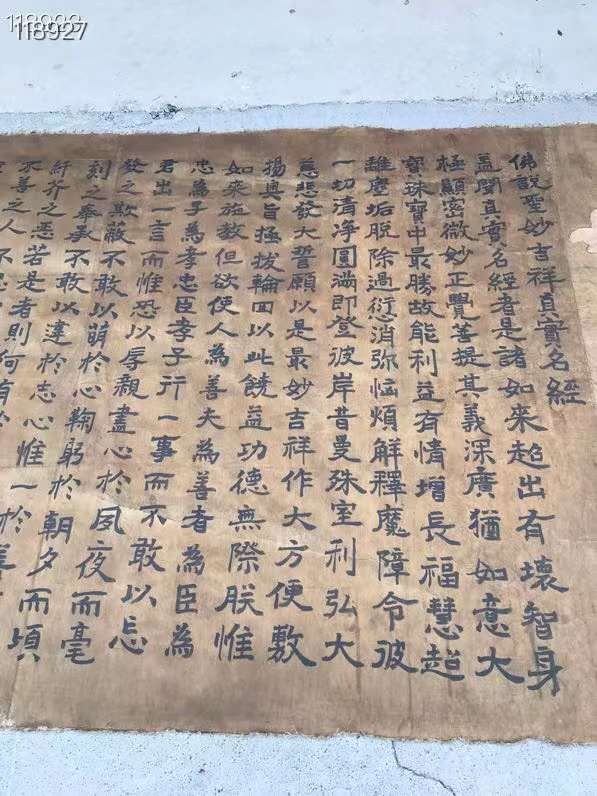 118927
佛說聖妙吉祥真實名經
蓋聞真實名經者是諸如來超出有壞智身
極顯密微妙正覺菩提其義深廣猶如意大
寶珠寶中最勝故能利益有情增長福慧超
離塵垢脫除過愆消弥惱煩解釋魔障令彼
一切清净圓滿即登彼岸昔曼殊室利弘大
慈悲發大誓願以是最妙吉祥作大方便敷
揚奥旨拯拔輪回以此饒益功德無際朕惟
如來施教但欲使人為善夫為善者為臣為
忠為子為孝忠臣孝子行一事而不敢以忘
君出一言而惟恐以辱親盡心於夙夜而毫
發之欺蔽不敢以萌於心鞠躬於朝夕而頃
刻之奉承不敢以違於志心惟一於善
纤芥之恶若是者則何有於
不善之人不